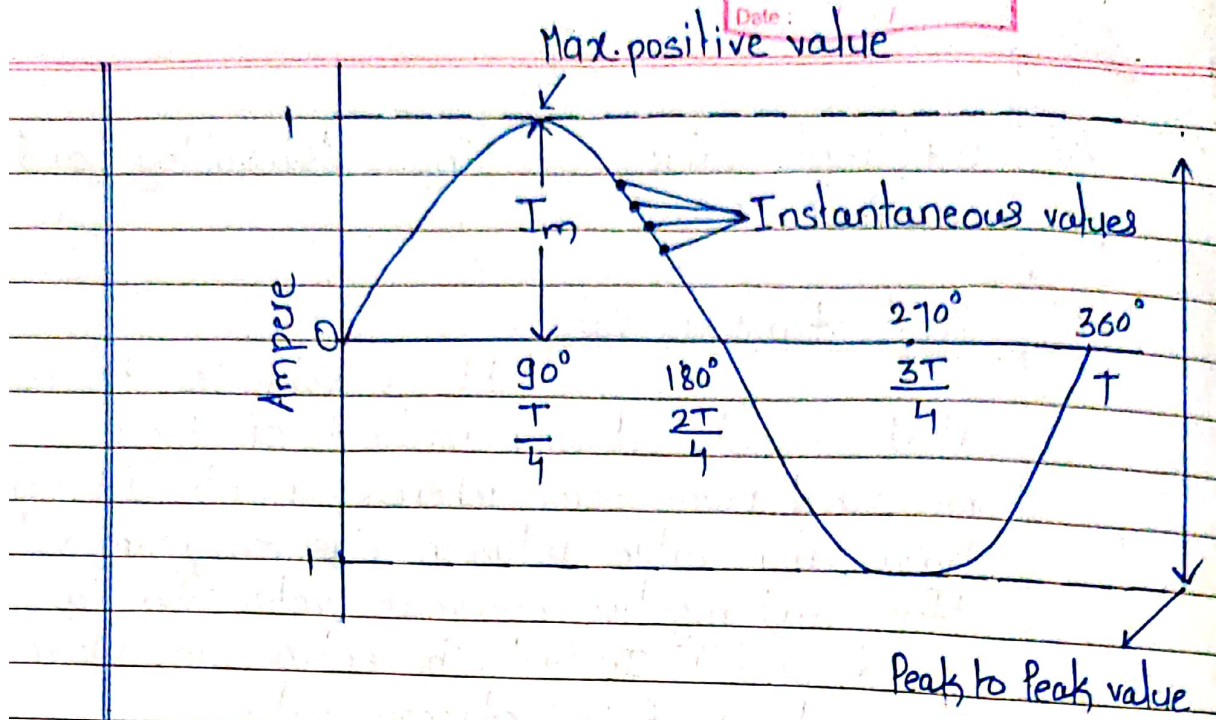 Date :
Max. positive value
1
Im
Instantaneous values
Ampere
0
270°
360°
90°
180°
3T/4
T
T/4
2T/4
1
Peak to Peak value